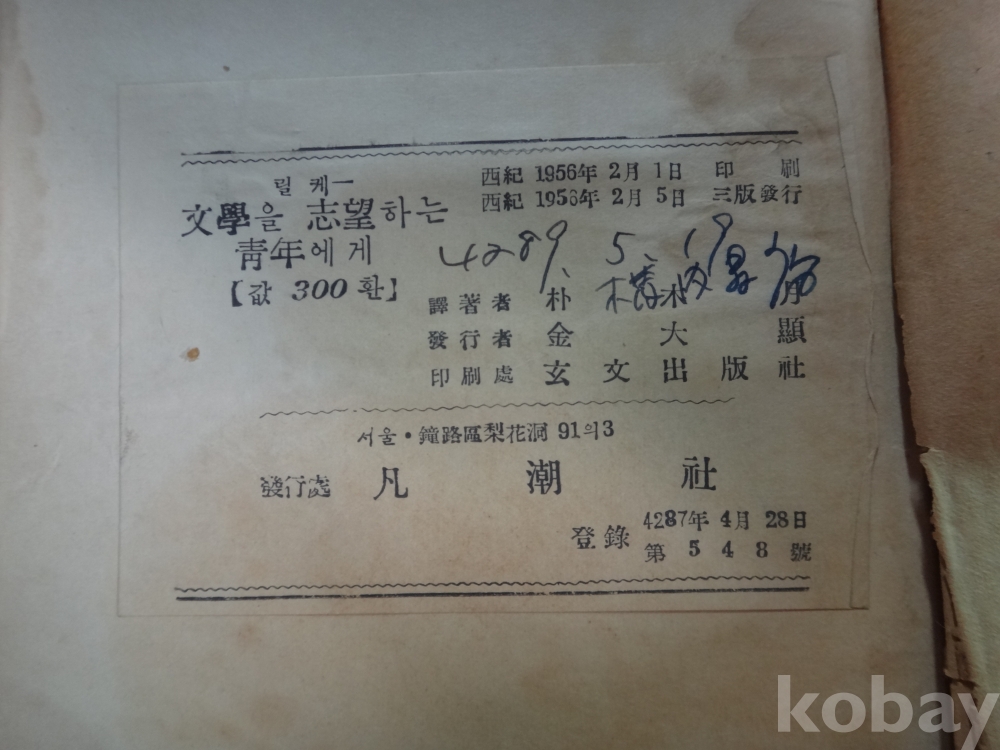 릴케ㅡ
文學을 志望하는
靑年에게
【값 300환】
西紀 1956年 2月 1日 印刷
西紀 1956年 2月 5日 三版發行
4289. 5. 19
譯著者 朴 木月
發行者 金大顯
印刷處 玄文出版社
서울・鐘路區梨花洞 91의3
發行處 凡潮社
登錄 4287年 4月 28日
第548號
kobay